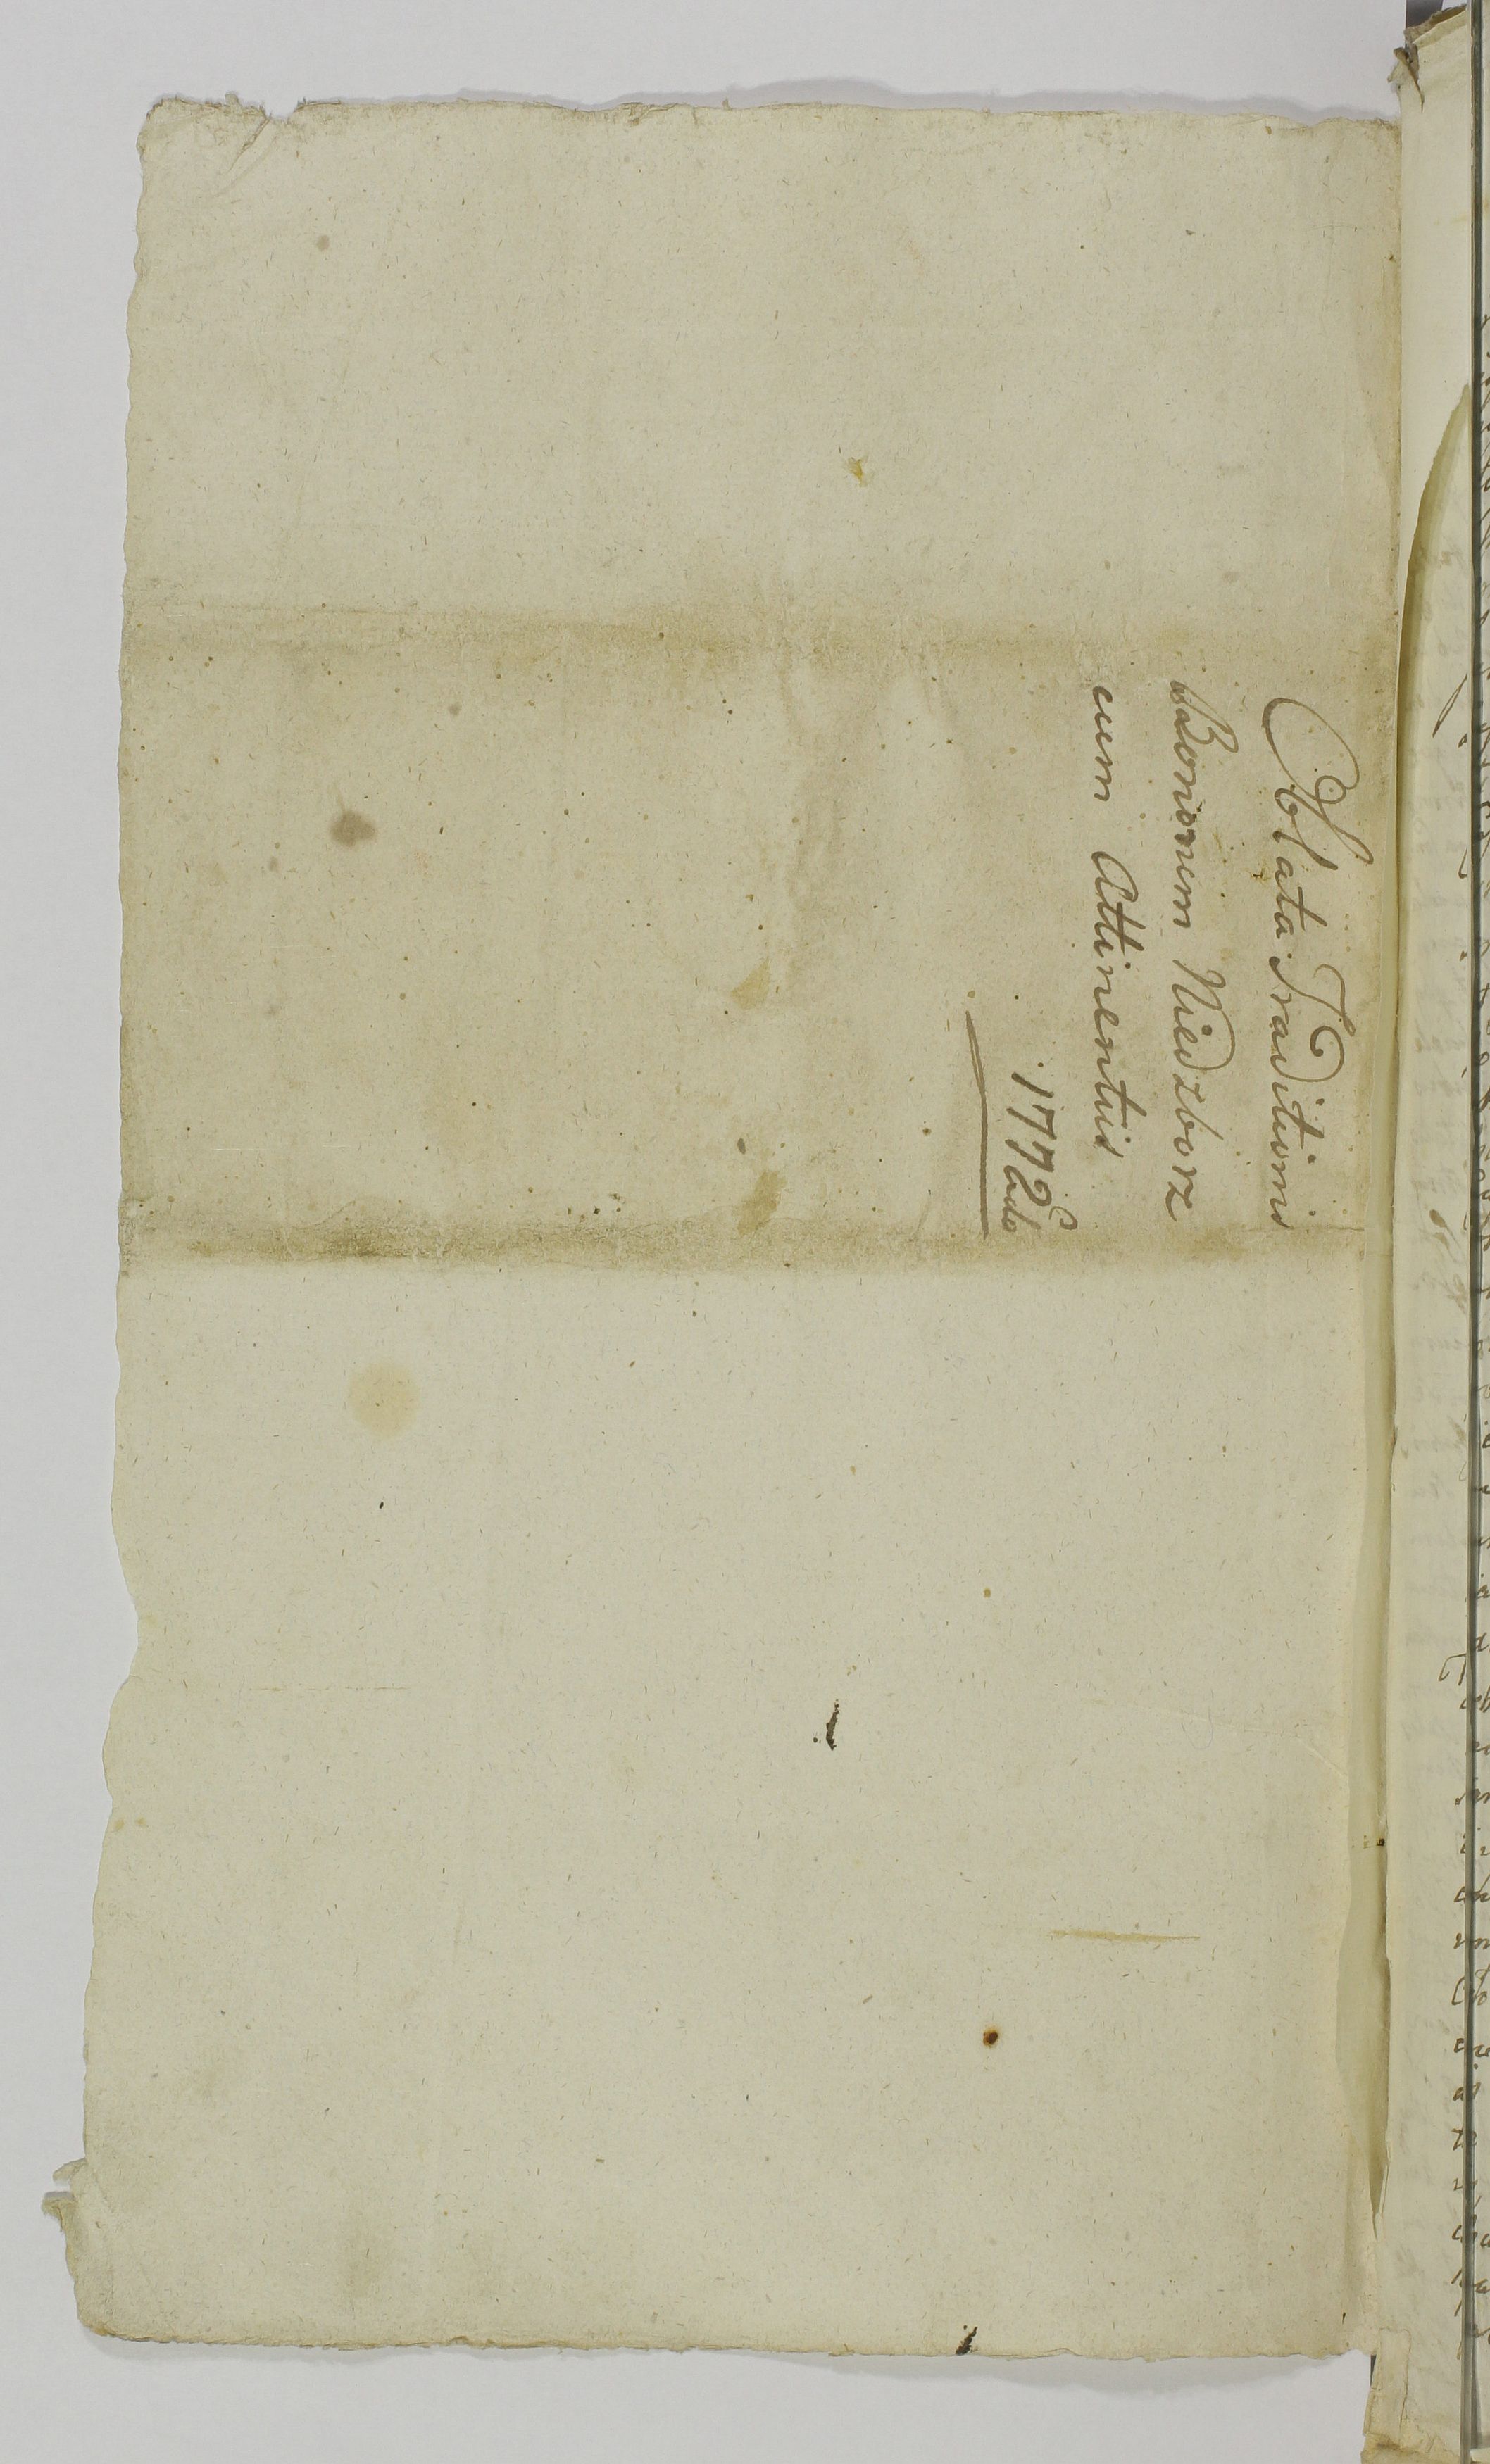 Oblata Traditionis
Bonorum Niedzborz
cum Attinentiis
1772do